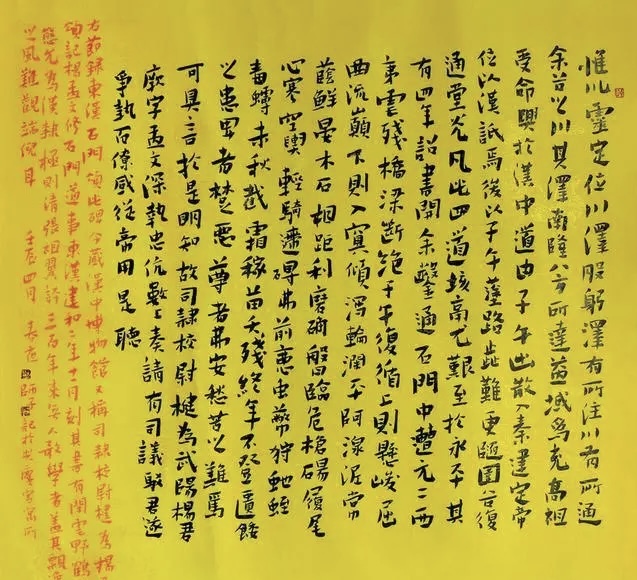 惟川靈定位川澤股躬澤有所注川有所通
余谷以川其澤南隆八方所達益域為充高祖
受命興於漢中道由子午出散入秦建定帝
位以漢詆焉後以子午塗路歰難更隨圍谷復
通堂光凡此四道垓鬲尤艱至於永平其
有四年詔書開余鑿通石門中遭元二西
夷虐殘橋梁斷絶子午復循上則懸峻屈
曲流巔下則入冥傾瀉輪淵平阿湶泥常
蔭鮮晏木石相距利磨确磐臨危槍碭履尾
心寒空輿輕騎遰碍弗前惡虫蔽狩虵蛭
毒蟃未秋截霜稼苗夭殘終年不登匱餧
之患卑者楚惡尊者弗安愁苦以難焉
可具言於是明知故司隸校尉楗為武陽楊君
厥字孟文深執忠伉數上奏請有司議駮君遂
爭執百僚咸從帝用是聽
右節録東漢石門頌此碑今藏漢中博物館又稱司隸校尉楗為楊
頌記楊孟文修石門道事東漢建和二年十一月刻其書有閒雲野鶴
態先為漢隸極則清張祖翼評三百年來學者蓋其飄逸
之風難觀端倪耳 壬辰四月